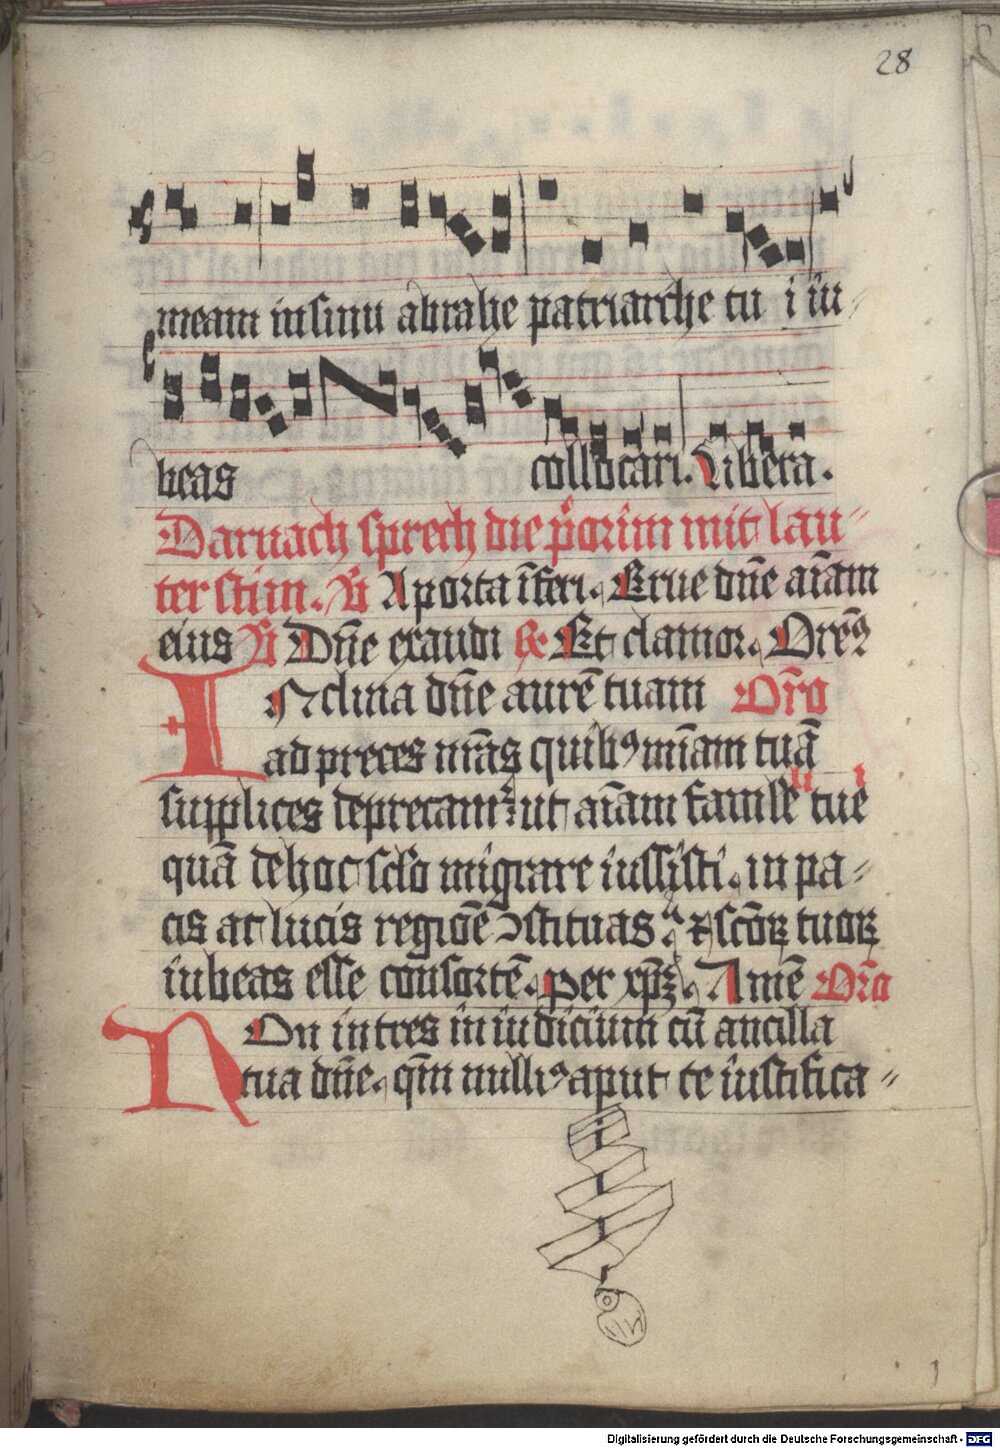 28
meam in sinu abrahe patriarche tu i iu⸗
beas collocari. Libera.
Darnach sprech die p̄orim mit lau⸗
ter stim. V̄ A porta īferi. Erue dn̄e aīam
eius V̄ Dn̄e exaudi R Et clamor. Orem̄ꝰ
INclina dn̄e aurē tuam Orō
ad preces nr̄as quibꝰ mīam tuā
supplices deprecamᷣ ut aīam famule tue
quā de hoc sclo migrare iussisti. in pa⸗
cis ac lucis regiōe ꝯstituas ⁊ scōꝝ tuoꝝ
iubeas esse consortē. Per xp̄ꝫ. Amē Orō
NOn intres in iudicium cū ancilla
tua dn̄e. qm̄ nullꝰ aput te iustifica⸗
Digitalisierung gefördert durch die Deutsche Forschungsgemeinschaft - DFG